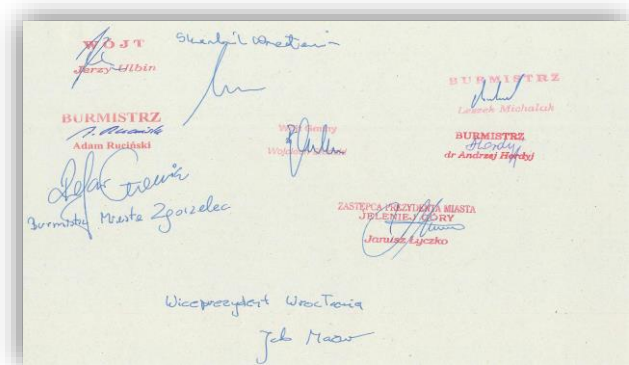 WÓJT
Jerzy Ulbin
Skarbnik Wrocławia
BURMISTRZ
Leszek Michalak
BURMISTRZ
A. Ruciński
Adam Ruciński
Wójt Gminy
BURMISTRZ
Hordyj
dr Andrzej Hordyj
Rafał Gronicz
Burmistrz Miasta Zgorzelec
ZASTĘPCA PREZYDENTA MIASTA
JELENIEJ GÓRY
Janusz Łyczko
Wiceprezydent Wrocławia